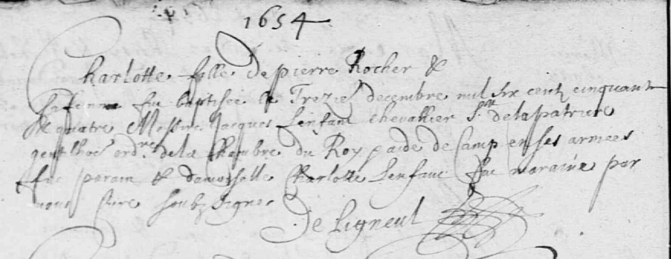 1654
Charlotte fille de pierre Rocher &
sa femme fut baptisée le Trezie decembre mil six centz cinquante
& quatre Messire Jacques Lenfant chevallier Sr de la patriere
gentilhoe ordre de la chambre du Roy & aide de Camp en ses armees
fut parain & damoiselle Charlotte Lenfant fut maraine par
nous Cure soubz signé
De Ligneul